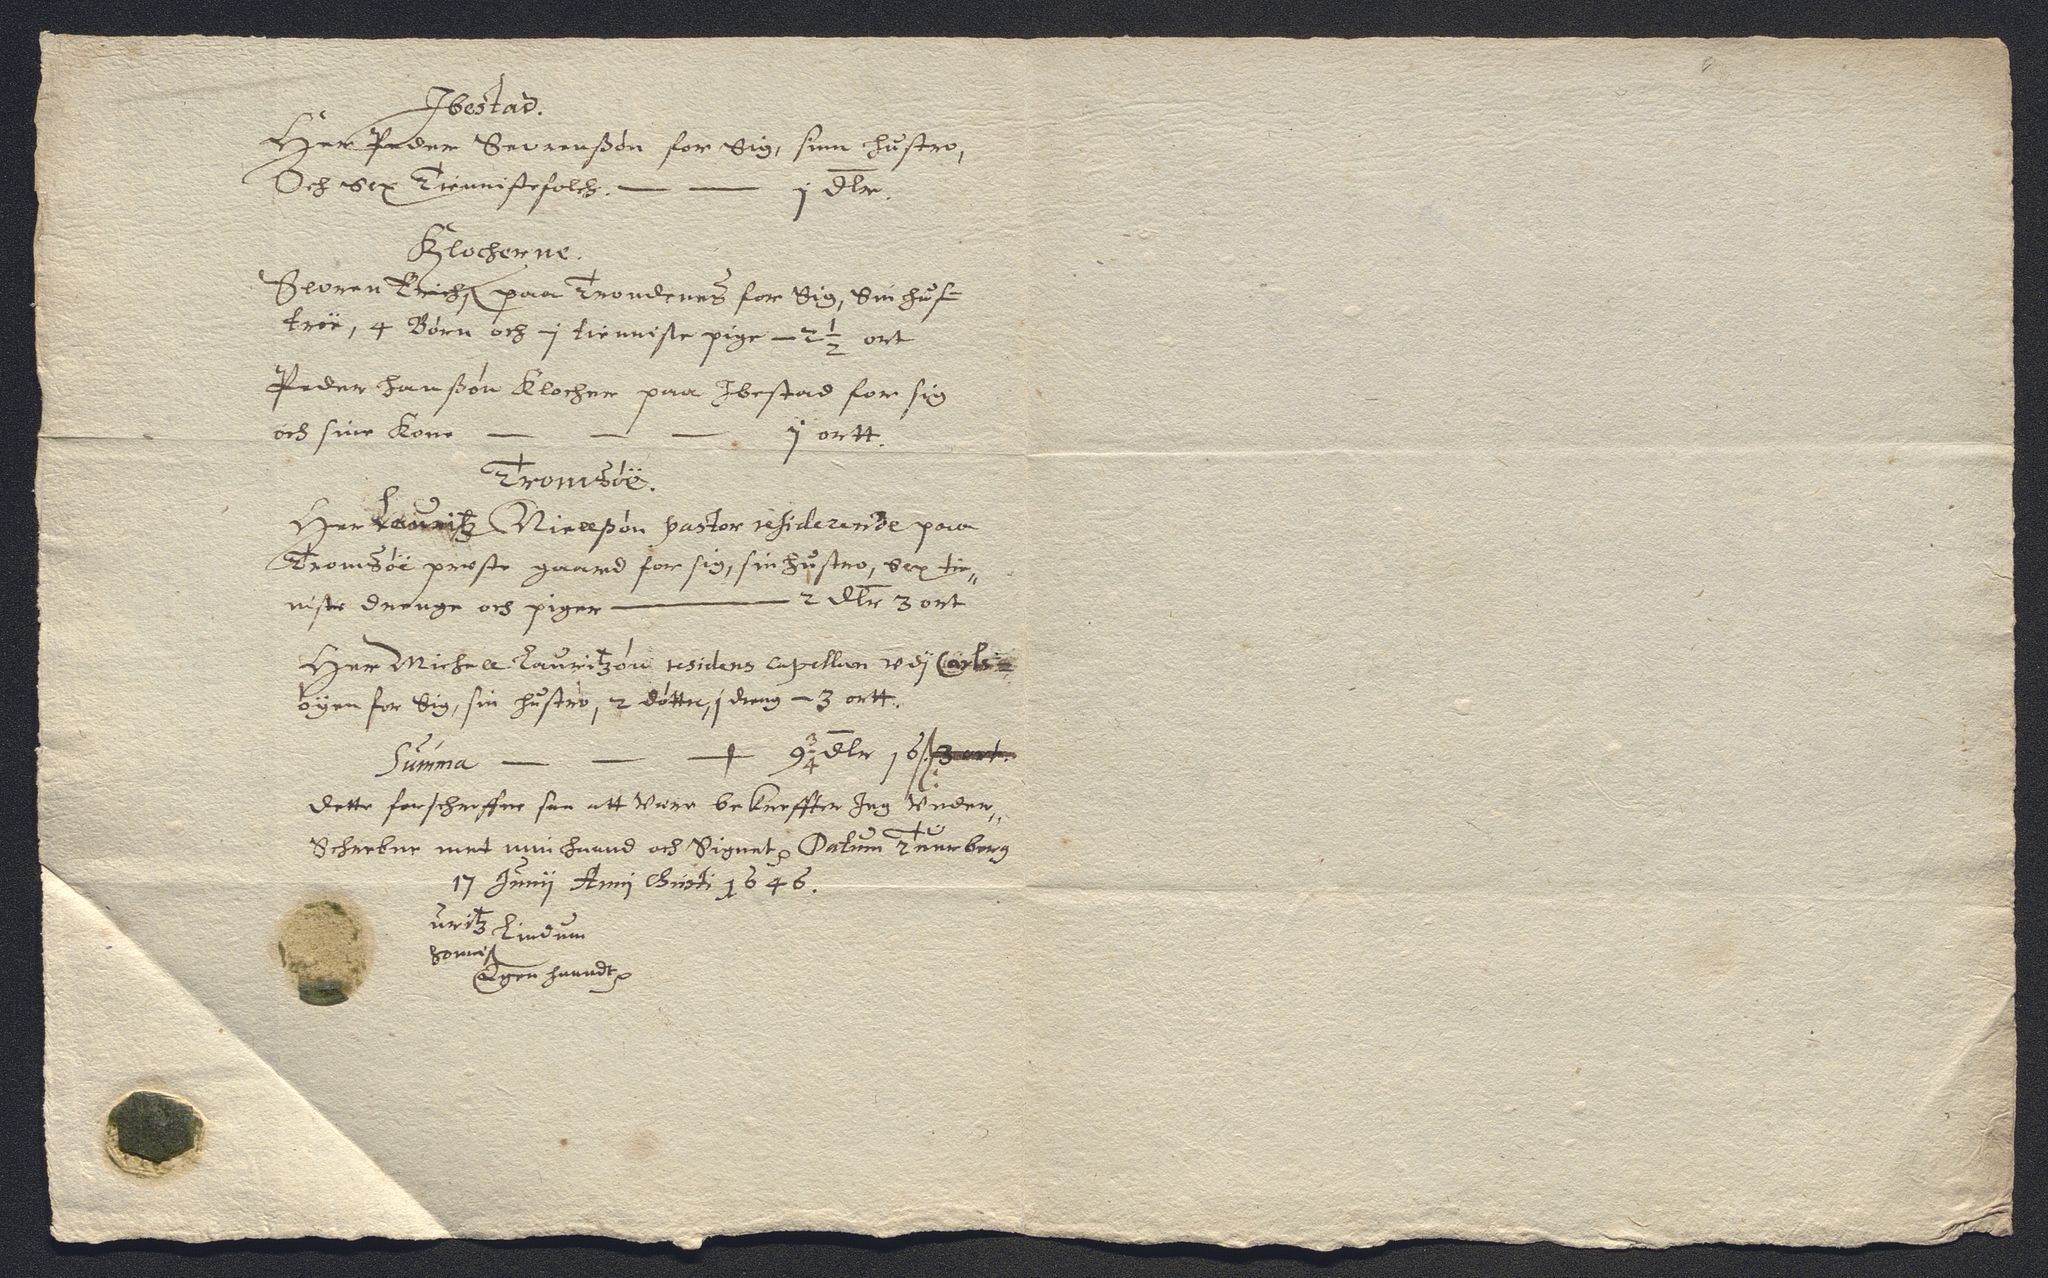 Ibestad.
Her Peder Seorenßón for Sig, sinn hustro,
Och Sex Tiennistefolch. — — j dlr.
Klocherne.
Seoren Erichß paa Trondenes for Sig, Sin hus=
troe, 4 Børn och j tienniste pige — 2 1/2 ort
Peder Hanßón Klocher paa Ibestad for sig
och sine Kone — — — j ortt.
Tromsóë.
Her Lauritz Nielßón pastor residerende paa
Tromsóë preste gaard for sig, sin hustro, Sex tie„
niste drenge och piger — 2 dlr 3 ort
Her Michell Lauritzón residens capellan vdj Carls=
óyen for Sig, sin hustro, 2 dóttre, j dreng — 3 ortt.
Summa — — — 9 3/4 dlr 16 ß 3 ort.
Dette forschreffne saa att Vere bekreffter Jeg Vnder„
Schrebne met min haand och Signet, Datum
17 Junij Anni Christi 1646.
uritz Lindum
Egen haandt